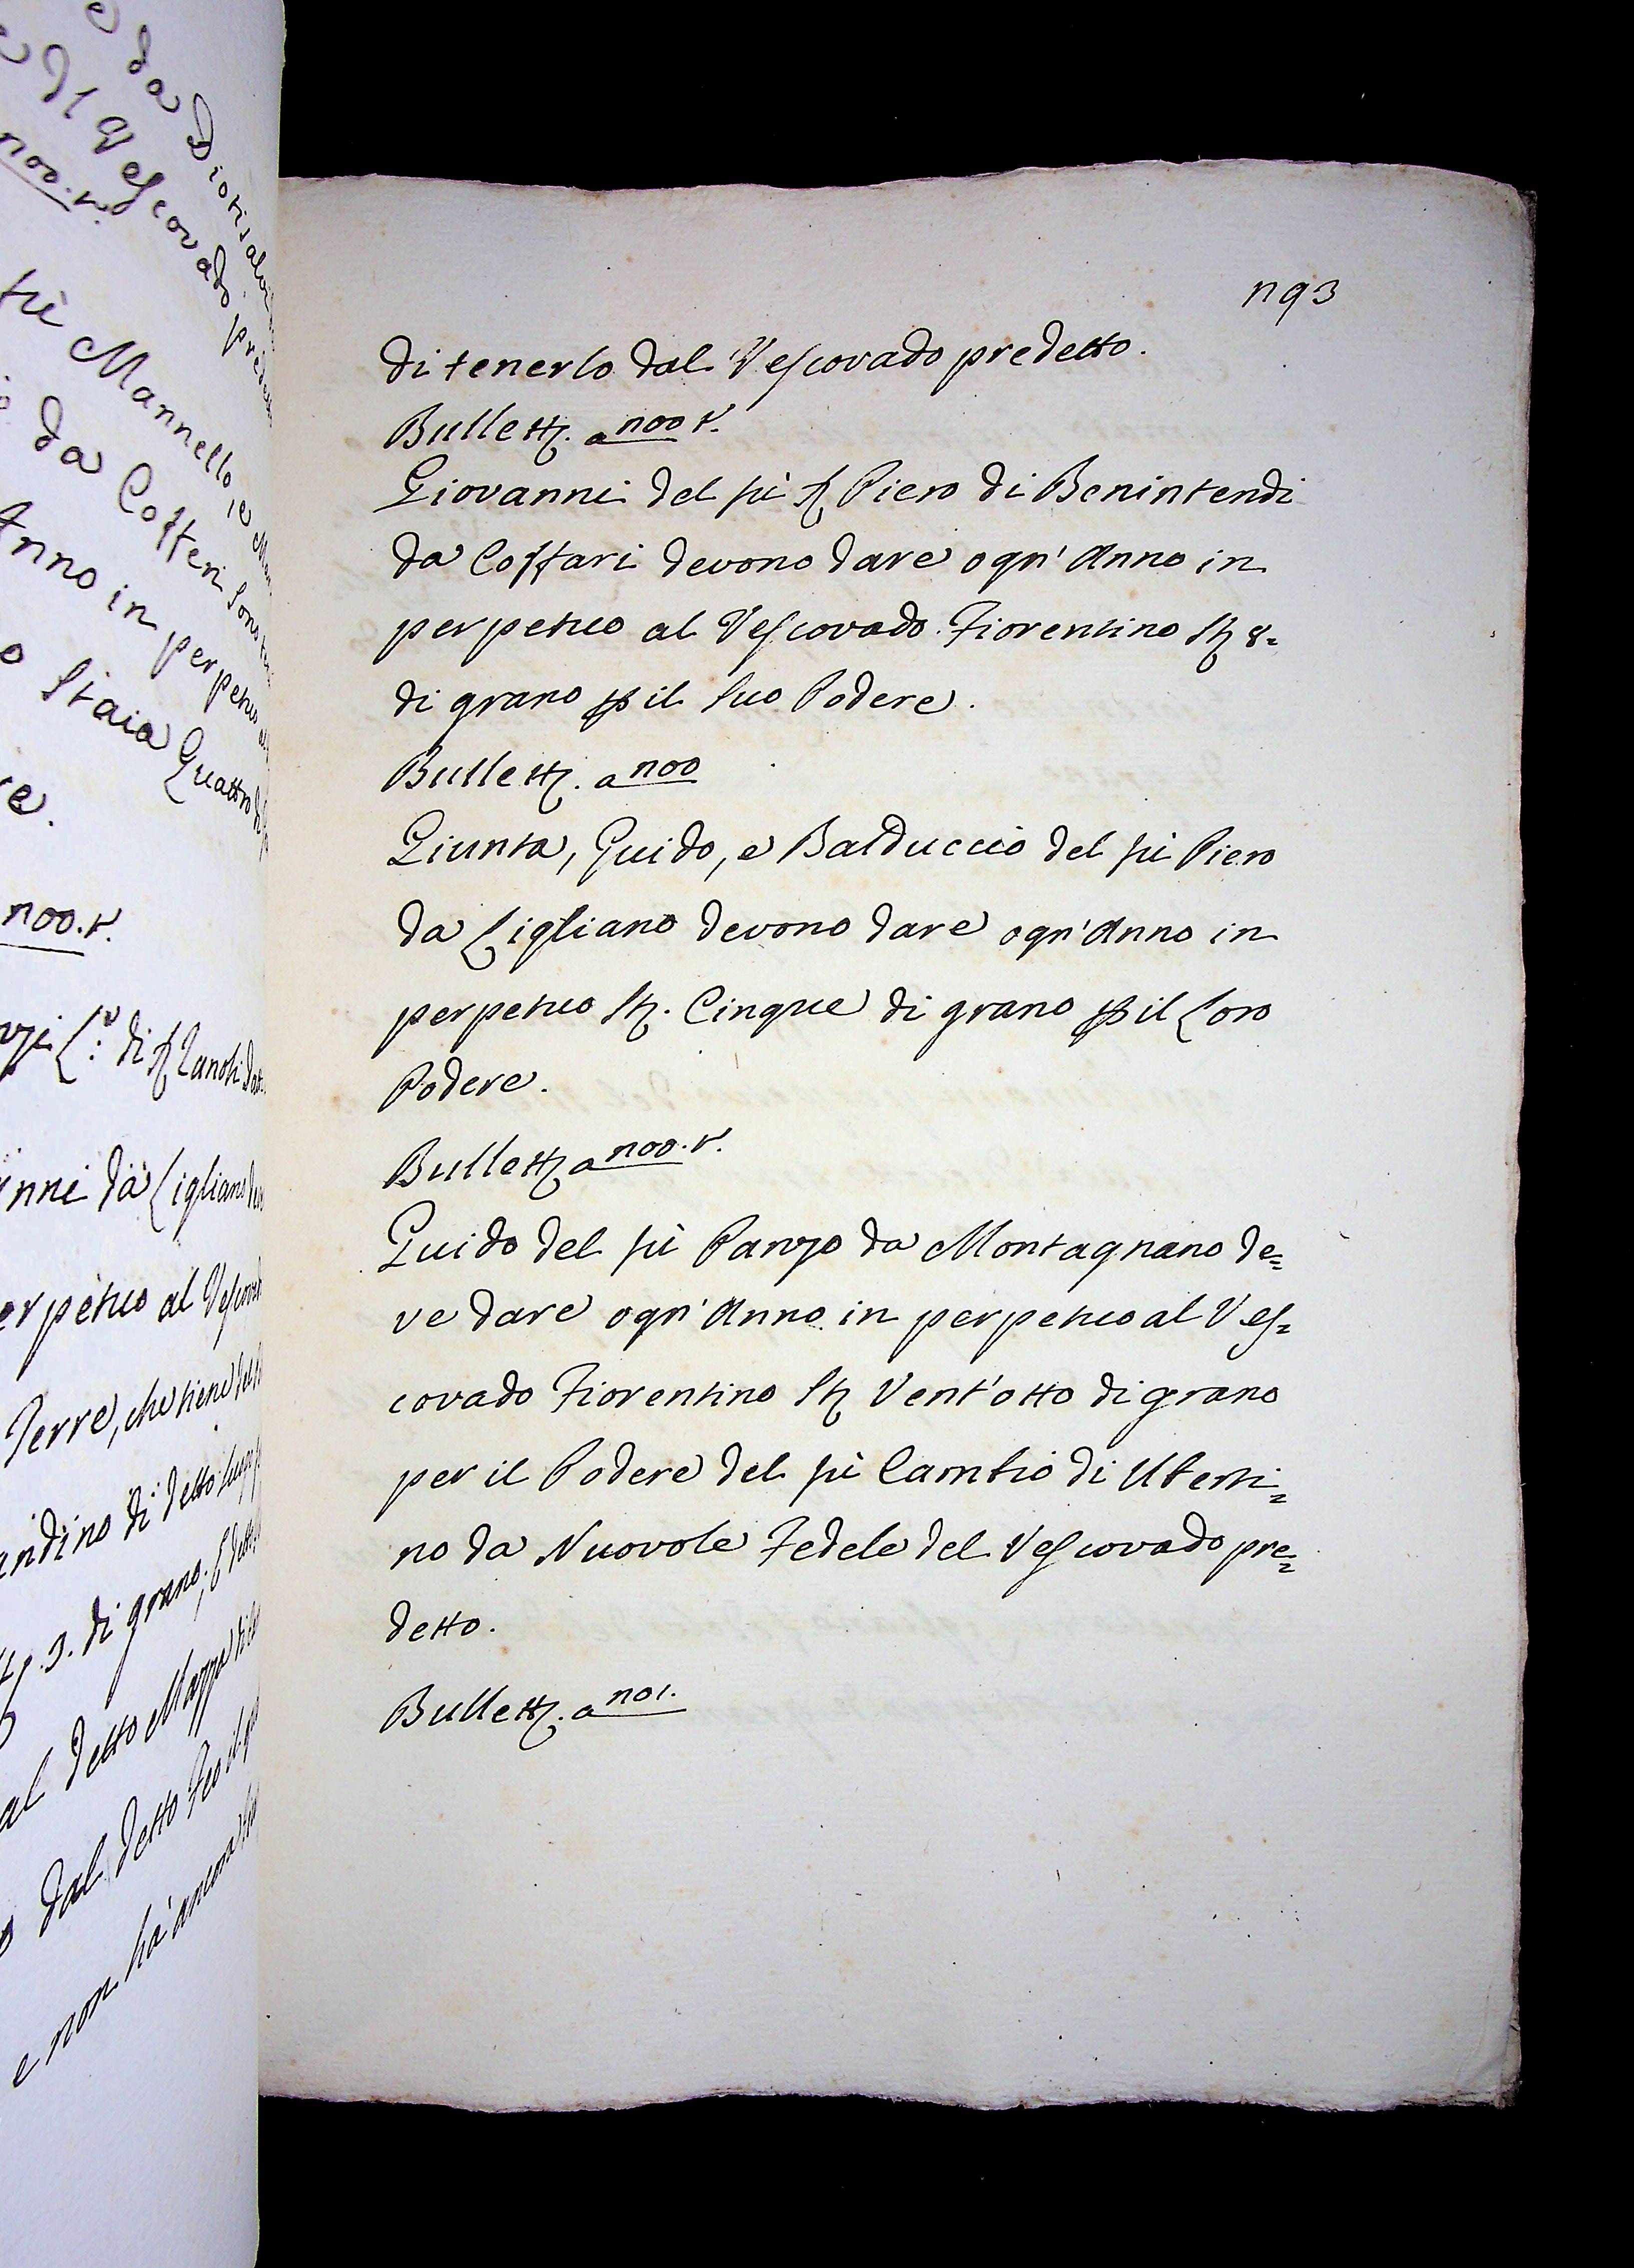 da Diotisalvi
Vescovado
100. t.
fù Mannello, e
da Cofferi
Anno in perpetuo
Staia Quattro
re.
100. t.
di Ser Zanobi
da Cigliano
perpetuo al Vescovado
Terre, che tiene
di detto
3. di grano;
al detto Mazza
dal detto Feo
e non hà ancora
193
di tenerlo dal Vescovado predetto.
Bullett. a 100 t.
Giovanni del fù Ser Piero di Benintendi
da Coffari devono dare ogn'Anno in
perpetuo al Vescovado Fiorentino St. 8=
di grano p il suo Podere.
Bullett. a 100
Giunta, Guido, e Balduccio del fù Piero
da Cigliano devono dare ogn'Anno in
perpetuo St. Cinque di grano p il loro
Podere.
Bullett. a 100. t.
Guido del fù Panzo da Montagnano de=
ve dare ogn'Anno in perpetuo al Ves=
covado Fiorentino St. Vent'otto di grano
per il Podere del fù Cambio di Uberti=
no da Nuovole Fedele del Vescovado pre=
detto.
Bullett. a 101.